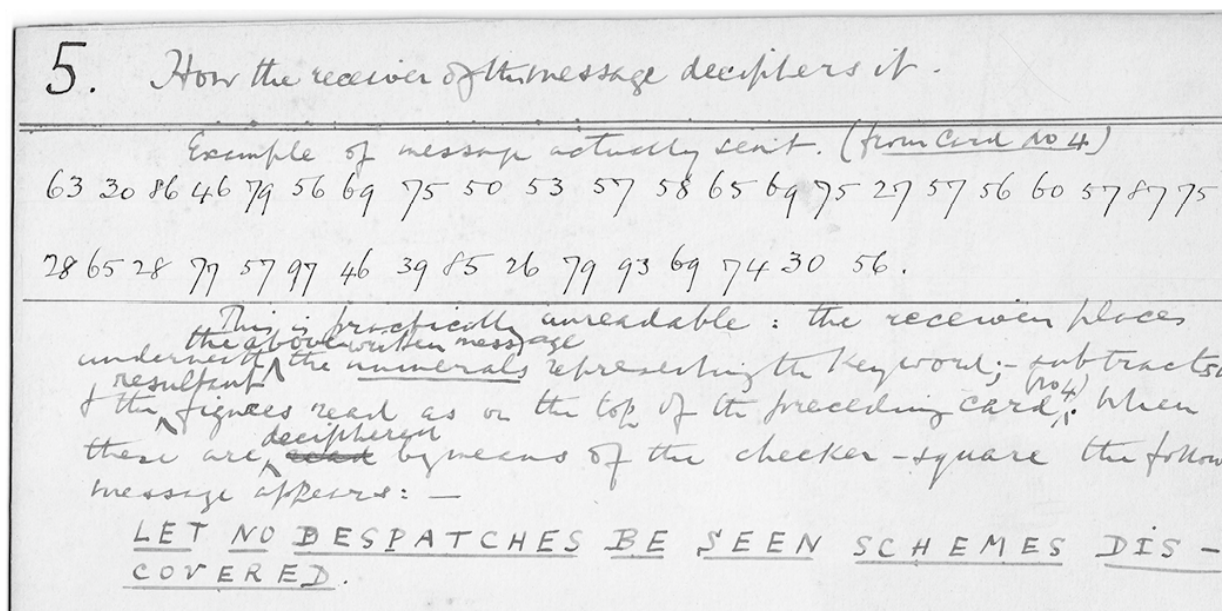 5. How the receiver of the message deciphers it.
Example of message actually sent. (from Card no 4)
63 30 86 46 79 56 69 75 50 53 57 58 65 69 75 27 57 56 60 57 87 75
28 65 28 77 57 97 46 39 85 26 79 93 69 74 30 56.
This is practically unreadable : the receiver places
the above written message
underneath the numerals representing the Keyword; - subtracts
resultant (no 4)
& the figures read as on the top of the preceding card. When
deciphered
these are read by means of the checker-square the follow
message appears: —
LET NO DESPATCHES BE SEEN SCHEMES DIS-
COVERED.